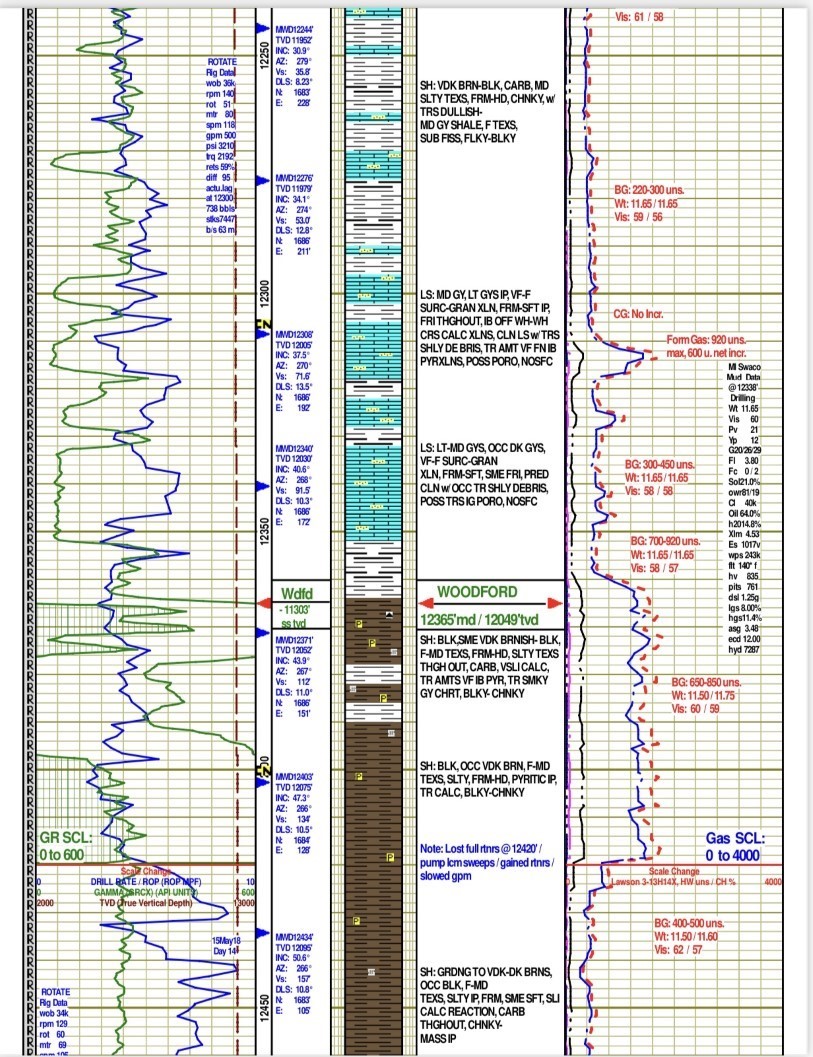 Vis: 61 / 58
MWD12244'
TVD 11952'
INC: 30.9°
AZ: 279°
Vs: 35.8'
DLS: 8.23°
N: 1683'
E: 228'
12250
ROTATE
Rig Data
wob 36k
rpm 140
rot 51
mtr 80
spm 118
gpm 500
psi 3210
trq 2192
rets 59%
diff 95
actu.lag
at 12300
738 bbls
stks7447
b/s 63 m
SH: VDK BRN-BLK, CARB, MD
SLTY TEXS, FRM-HD, CHNKY, w/
TRS DULLISH-
MD GY SHALE, F TEXS,
SUB FISS, FLKY-BLKY
MWD12276'
TVD 11979'
INC: 34.1°
AZ: 274°
Vs: 53.0'
DLS: 12.8°
N: 1686'
E: 211'
BG: 220-300 uns.
Wt: 11.65 / 11.65
Vis: 59 / 56
12300
LS: MD GY, LT GYS IP, VF-F
SURC-GRAN XLN, FRM-SFT IP,
FRI THGHOUT, IB OFF WH-WH
CRS CALC XLNS, CLN LS w/ TRS
SHLY DE BRIS, TR AMT VF FN IB
PYRXLNS, POSS PORO, NOSFC
CG: No Incr.
Form Gas: 920 uns.
max, 600 u. net incr.
MWD12308'
TVD 12005'
INC: 37.5°
AZ: 270°
Vs: 71.6'
DLS: 13.5°
N: 1686'
E: 192'
MI Swaco
Mud Data
@12338'
Drilling
Wt 11.65
Vis 60
Pv 21
Yp 12
G20/26/29
Fl 3.80
Fc 0 / 2
Sol21.0%
owr81/19
Cl 40k
Oil 64.0%
h2014.8%
Xlm 4.53
Es 1017v
wps 243k
flt 140° f
hv 835
pits 761
dsl 1.25g
lgs 8.00%
hgs11.4%
asg 3.48
ecd 12.00
hyd 7287
MWD12340'
TVD 12030'
INC: 40.6°
AZ: 268°
Vs: 91.5'
DLS: 10.3°
N: 1686'
E: 172'
LS: LT-MD GYS, OCC DK GYS,
VF-F SURC-GRAN
XLN, FRM-SFT, SME FRI, PRED
CLN w/ OCC TR SHLY DEBRIS,
POSS TRS IG PORO, NOSFC
BG: 300-450 uns.
Wt: 11.65 / 11.65
Vis: 58 / 58
12350
BG: 700-920 uns.
Wt: 11.65 / 11.65
Vis: 58 / 57
Wdfd
- 11303'
ss tvd
WOODFORD
12365'md / 12049'tvd
MWD12371'
TVD 12052'
INC: 43.9°
AZ: 267°
Vs: 112'
DLS: 11.0°
N: 1686'
E: 151'
SH: BLK,SME VDK BRNISH- BLK,
F-MD TEXS, FRM-HD, SLTY TEXS
THGH OUT, CARB, VSLI CALC,
TR AMTS VF IB PYR, TR SMKY
GY CHRT, BLKY- CHNKY
BG: 650-850 uns.
Wt: 11.50 / 11.75
Vis: 60 / 59
MWD12403'
TVD 12075'
INC: 47.3°
AZ: 266°
Vs: 134'
DLS: 10.5°
N: 1684'
E: 128'
SH: BLK, OCC VDK BRN, F-MD
TEXS, SLTY, FRM-HD, PYRITIC IP,
TR CALC, BLKY-CHNKY
GR SCL:
0 to 600
Note: Lost full rtnrs @ 12420' /
pump lcm sweeps / gained rtnrs /
slowed gpm
Gas SCL:
0 to 4000
Scale Change
0 DRILL RATE / ROP (ROP MPF) 10
0 GAMMA (GRCX) (API UNITS) 600
2000 TVD (True Vertical Depth) 13000
Scale Change
0 Lawson 3-13H14X, HW uns / CH % 4000
15May18
Day 14
MWD12434'
TVD 12095'
INC: 50.6°
AZ: 266°
Vs: 157'
DLS: 10.8°
N: 1683'
E: 105'
BG: 400-500 uns.
Wt: 11.50 / 11.60
Vis: 62 / 57
SH: GRDNG TO VDK-DK BRNS,
OCC BLK, F-MD
TEXS, SLTY IP, FRM, SME SFT, SLI
CALC REACTION, CARB
THGHOUT, CHNKY-
MASS IP
12450
ROTATE
Rig Data
wob 34k
rpm 129
rot 60
mtr 69